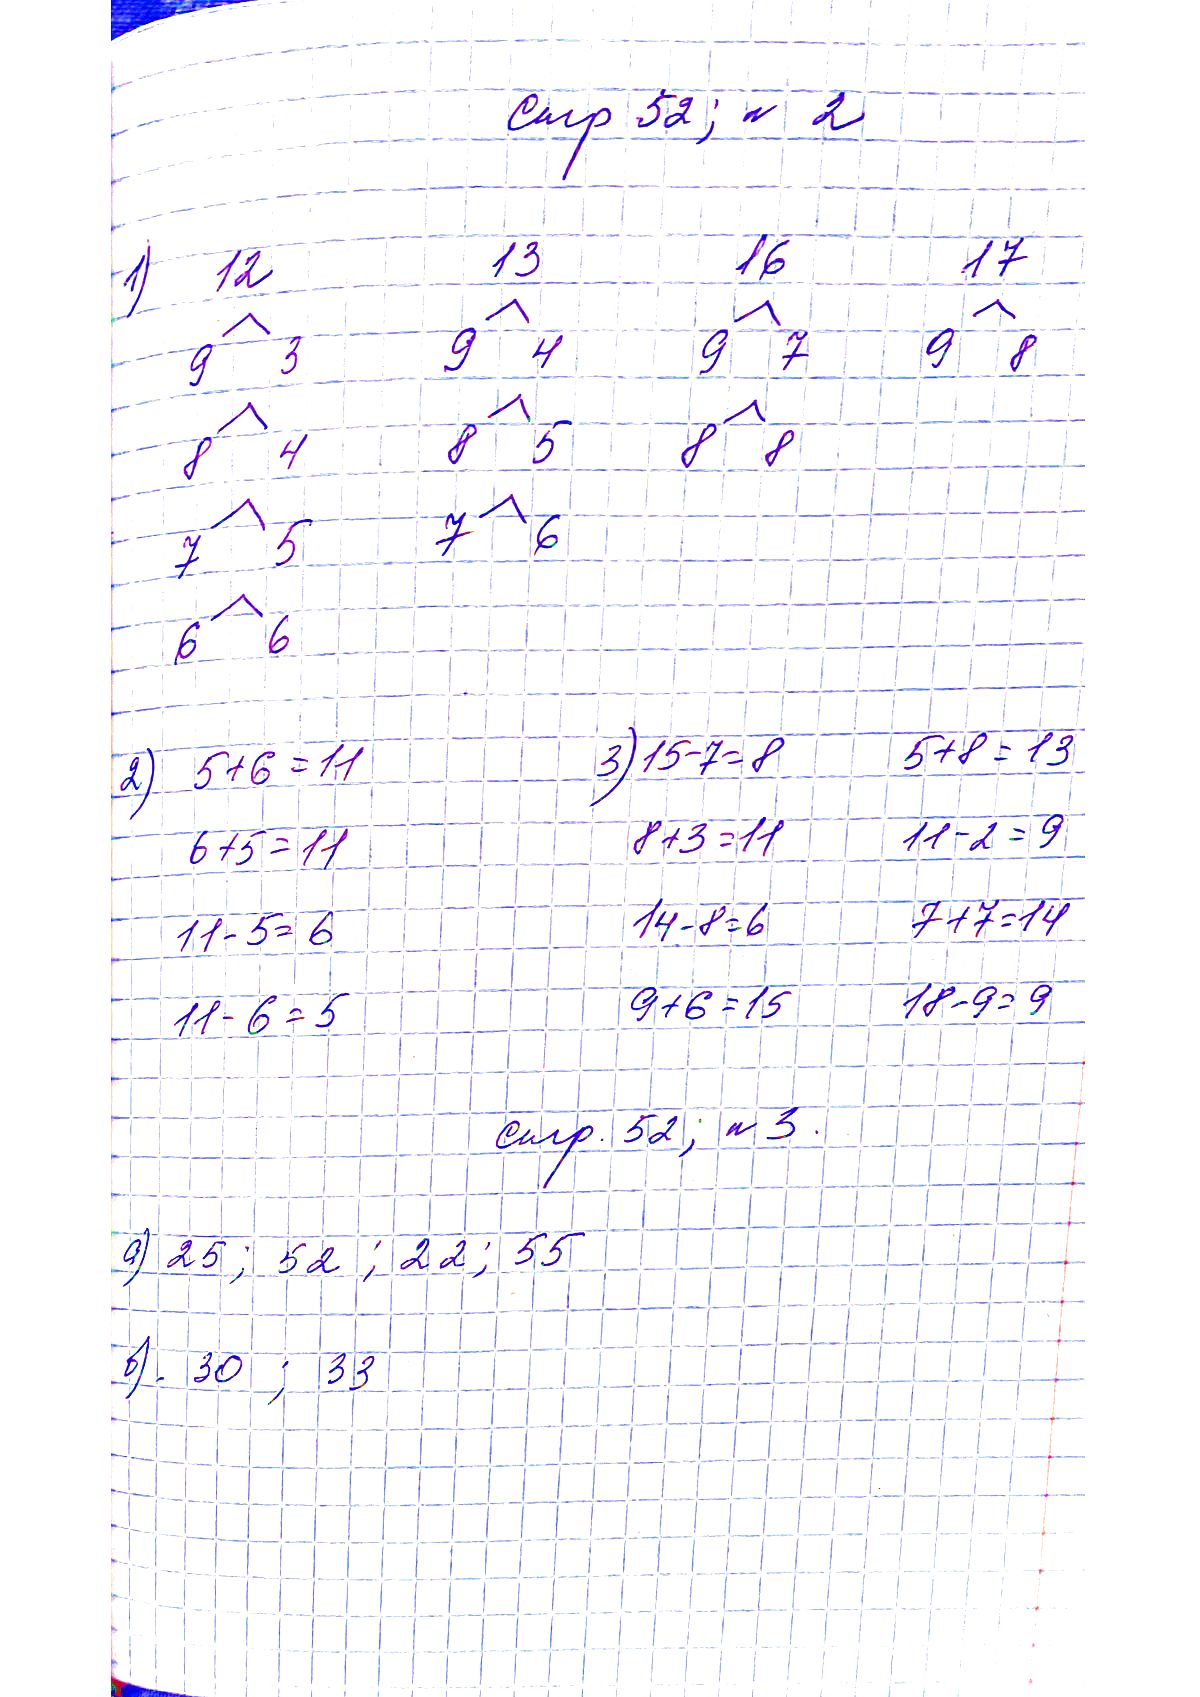 Стр 52; н 2
1) 12 13 16 17
9 3 9 4 9 7 9 8
8 4 8 5 8 8
7 5 7 6
6 6
2) 5+6=11 3) 15-7=8 5+8=13
6+5=11 8+3=11 11-2=9
11-5=6 14-8=6 7+7=14
11-6=5 9+6=15 18-9=9
Стр. 52; н 3.
а) 25; 52; 22; 55
б). 30; 33